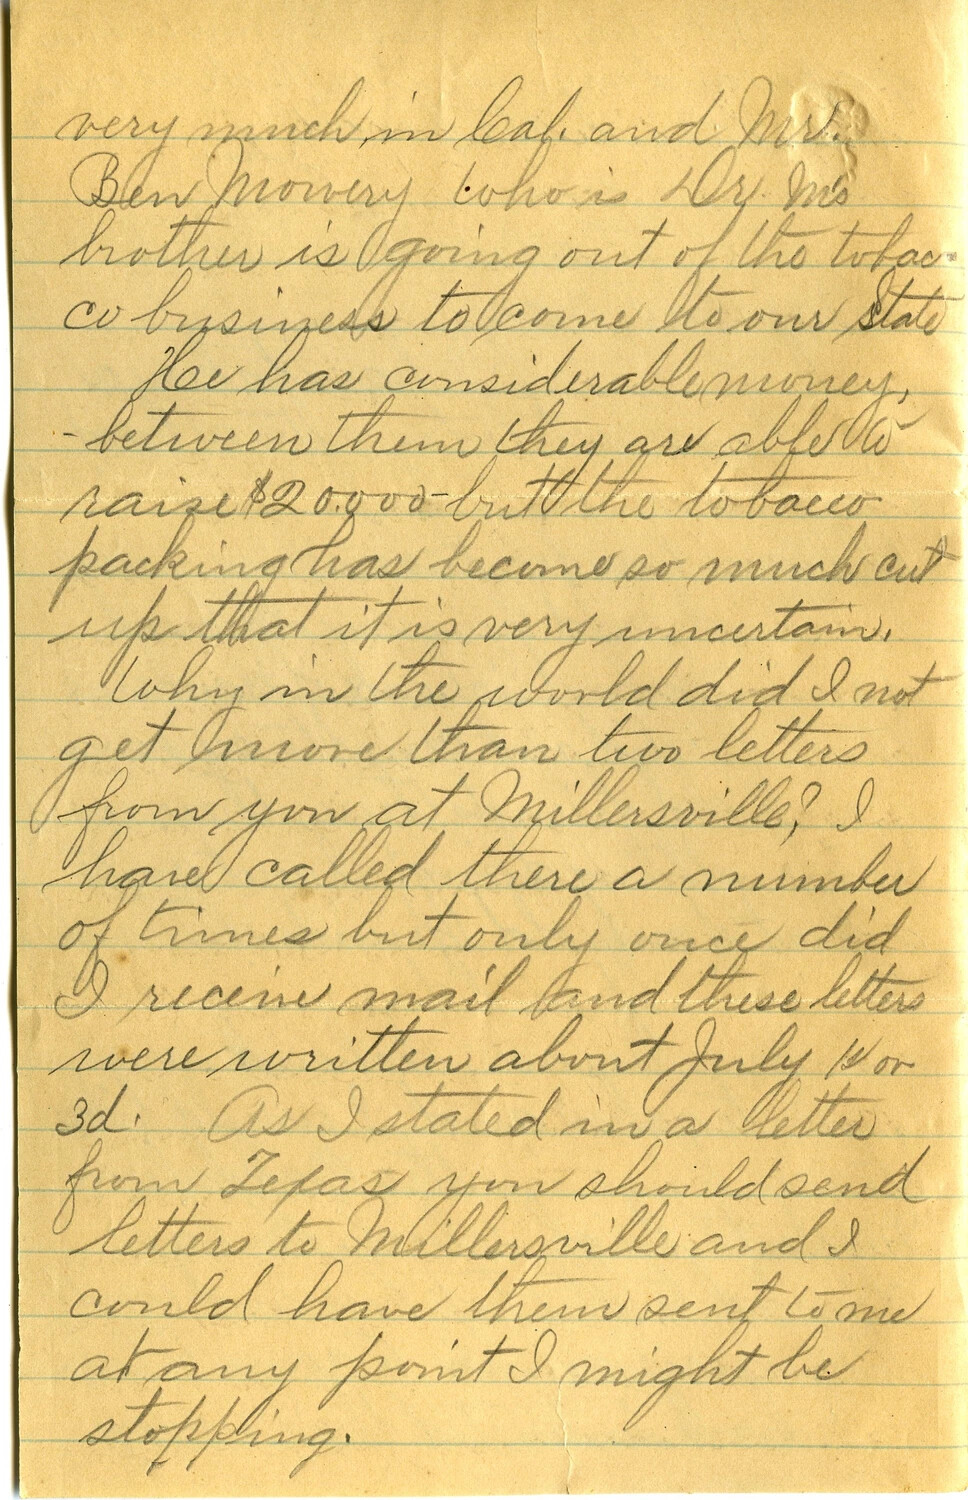 very much in Cal. and Mr.
Ben Mowery who is Dr. M's
brother is going out of the tobac-
co business to come to our State
He has considerable money,
- between them they are able to
raise $20.000- but the tobacco
packing has become so much cut
up that it is very uncertain.
Why in the world did I not
get more than two letters
from you at Millersville? I
have called there a number
of times but only once did
I receive mail and these letters
were written about July 1st or
3d. As I stated in a letter
from Texas you should send
letters to Millersville and I
could have them sent to me
at any point I might be
stopping.